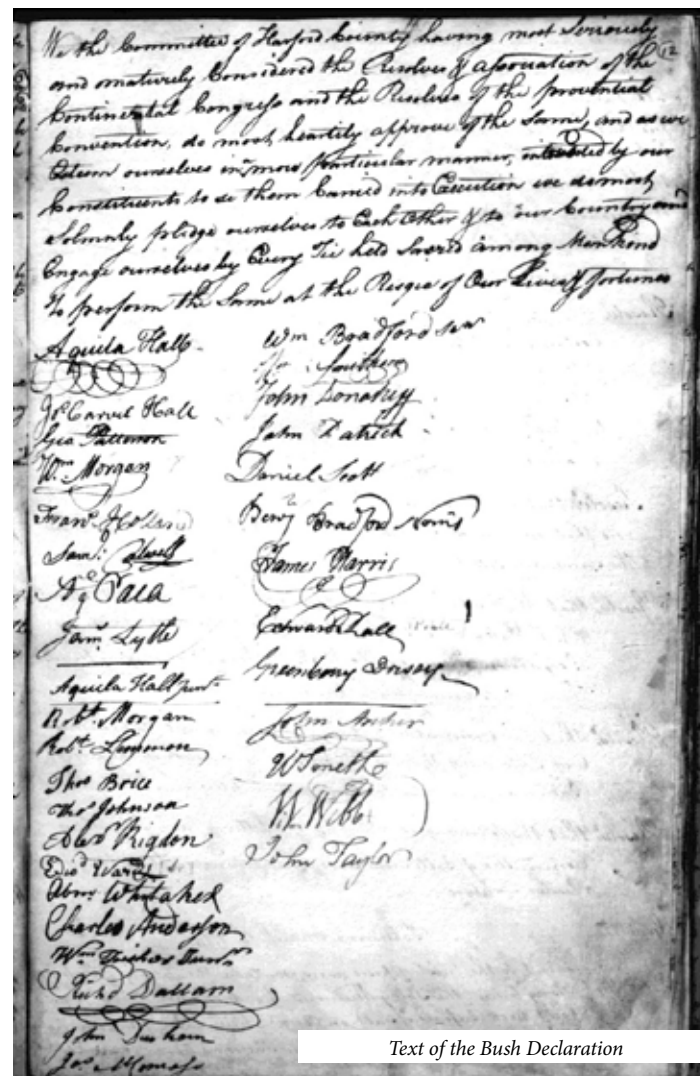 We the Committee of Harford County having most Seriously
12
and maturely Considered the Resolves & Association of the
Continental Congress and the Resolves of the provential
Convention, do most heartily approve of the Same, and as we
Esteem ourselves in more particular manner, intrusted by our
Constituents to se them Carried into Execution we do most
Solemnly pledge ourselves to Each Other & to our Country and
Engage ourselves by Every Tie held Sacred among Mankind
To perform the Same at the Risque of Our Lives & fortunes
Aquila Hall
Jos Carvil Hall
Geo Patterson
Wm Morgan
Frans Holland
Saml Calwell
Aq Paca
Jams Lytle
Aquila Hall junr
Robt Morgan
Robt Lemmon
Thos Brice
Thos Johnson
Alexr Rigdon
Edwd Ward
Abm Whitaker
Charles Anderson
Wm Fisher Junr
Richd Dallam
John Durham
Jas McComas
Wm Bradford Senr
John Donahuy
John Patrick
Daniel Scott
Benj Bradford Norris
James Harris
Edward Hall
Greenberry Dorsey
John Archer
W Smith
Wm Webb
John Taylor
Text of the Bush Declaration